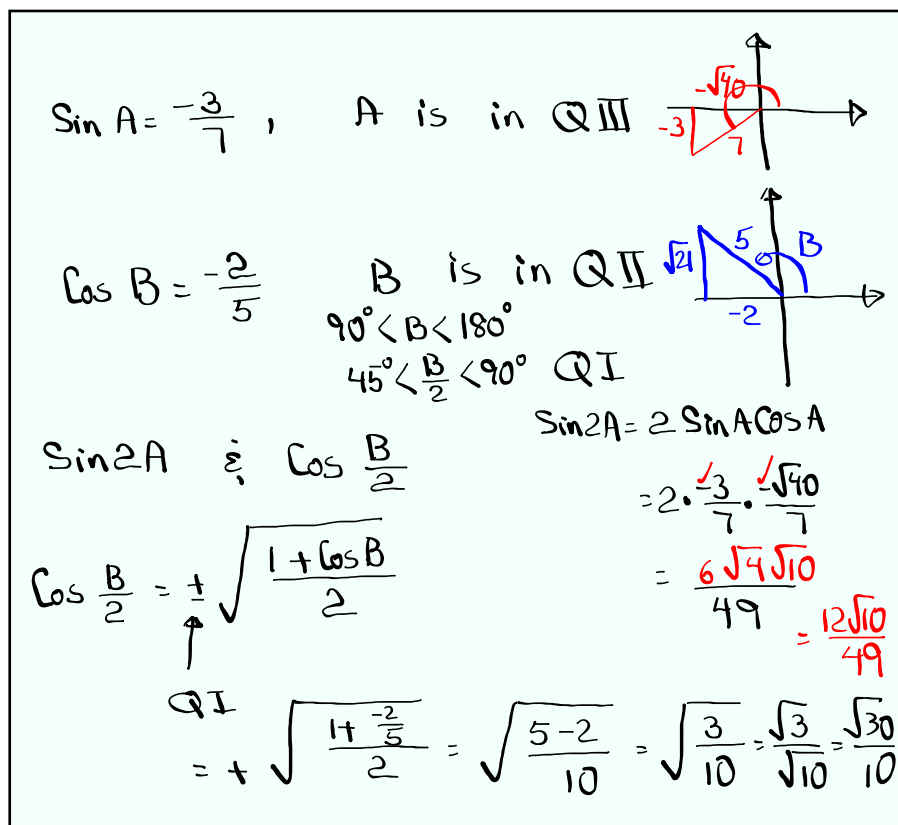 Sin A = -3/7 , A is in QIII
-√40
-3
7
Cos B = -2/5 B is in QII
√21
5
B
-2
90° < B < 180°
45° < B/2 < 90° QI
Sin2A & Cos B/2
Sin2A = 2 SinA CosA
= 2 · -3/7 · -√40/7
= 6√4√10/49
= 12√10/49
Cos B/2 = ± √((1 + CosB)/2)
QI
= + √((1 + -2/5)/2) = √((5-2)/10) = √(3/10) = √3/√10 = √30/10